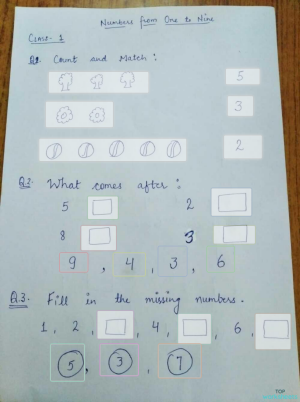 Numbers from One to Nine
CLASS- 1
Q1. Count and Match :
5
3
2
Q2. What comes after :
5 2
8 3
9 , 4 , 3 , 6
Q.3. Fill in the missing numbers.
1, 2, , 4, , 6,
5, 3, 7
TOP